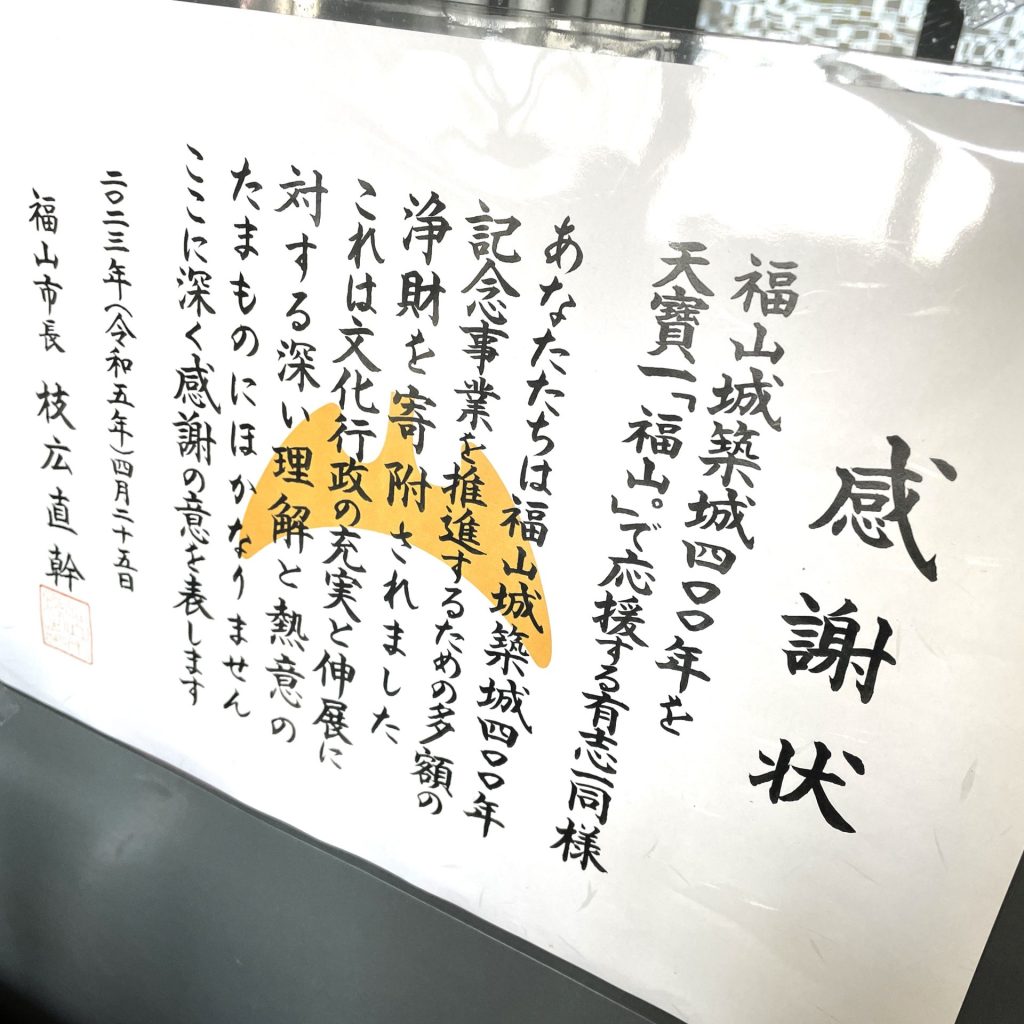 感謝状
福山城築城四〇〇年を
天寶一「福山。」で応援する有志一同様
あなたたちは福山城築城四〇〇年
記念事業を推進するための多額の
浄財を寄附されました
これは文化行政の充実と伸展に
対する深い理解と熱意の
たまものにほかなりません
ここに深く感謝の意を表します
二〇二三年(令和五年)四月二十五日
福山市長 枝広直幹